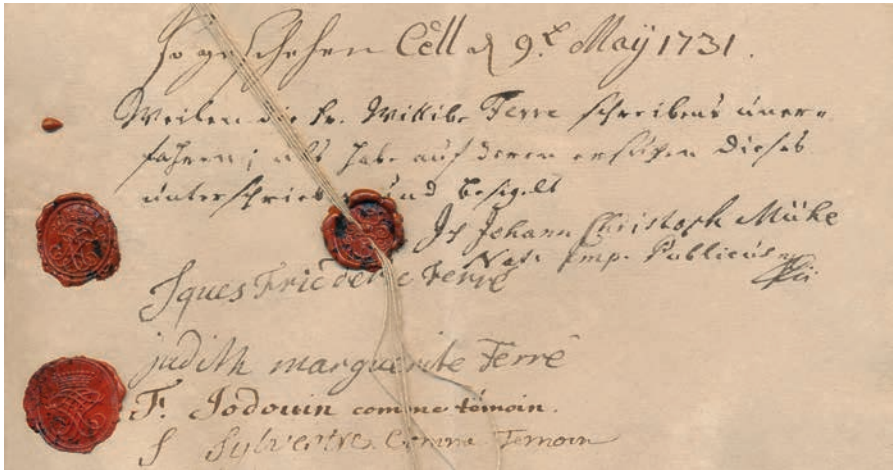 So geschehen Cell d 9t. Maÿ 1731.
Weilen die Fr. Wittibe Ferre schreibens uner=
fahren; als habe auf deren ersuchen dieses
unterschrieben und besigelt
Johann Christoph Müke
Not: Imp. Publicus
Jques Friederic Ferré
judith marguerite Ferré
F. Jodouin comme témoin.
S Sylvestre. Comme Temoin